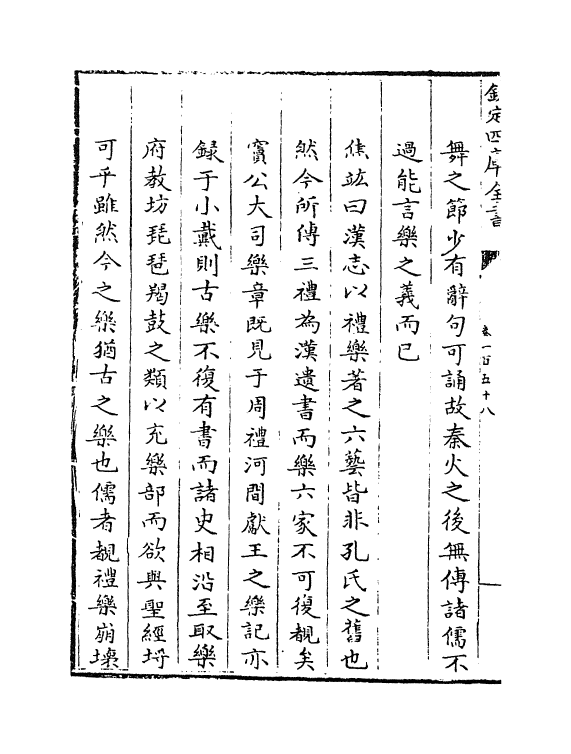 欽定四庫全書
卷一百五十八
舞之節少有辭句可誦故秦火之後無傳諸儒不
過能言樂之義而已
焦竑曰漢志以禮樂著之六藝皆非孔氏之舊也
然今所傳三禮為漢遺書而樂六家不可復覩矣
竇公大司樂章既見于周禮河間獻王之樂記亦
録于小戴則古樂不復有書而諸史相沿至取樂
府教坊琵琶羯鼓之類以充樂部而欲與聖經埒
可乎雖然今之樂猶古之樂也儒者覩禮樂崩壊